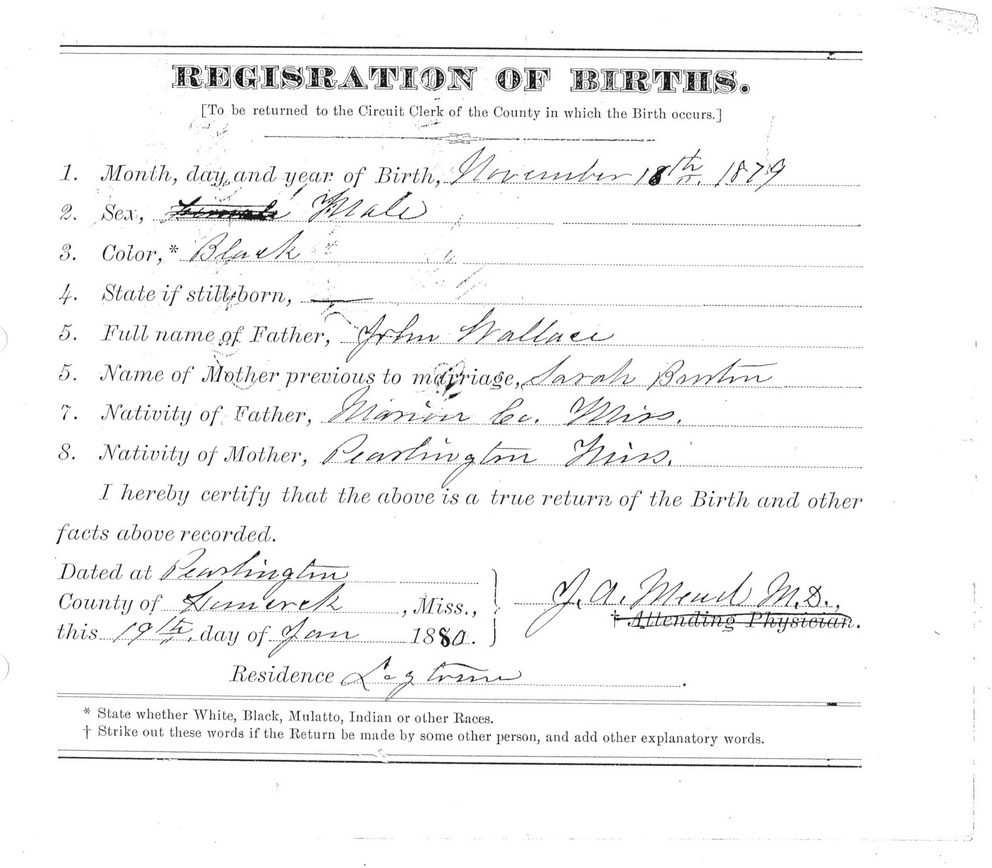 REGISRATION OF BIRTHS.
[To be returned to the Circuit Clerk of the County in which the Birth occurs.]
1. Month, day, and year of Birth, November 18th. 1879
2. Sex, Female Male
3. Color,* Black
4. State if still-born, —
5. Full name of Father, John Wallace
5. Name of Mother previous to marriage, Sarah Burton
7. Nativity of Father, Marion Co. Miss.
8. Nativity of Mother, Pearlington Miss.
I hereby certify that the above is a true return of the Birth and other
facts above recorded.
Dated at Pearlington
County of , Miss.,
this 19th, day of Jan 1880.
J. A. Mead M.D.,
† Attending Physician.
Residence Logtown.
* State whether White, Black, Mulatto, Indian or other Races.
† Strike out these words if the Return be made by some other person, and add other explanatory words.